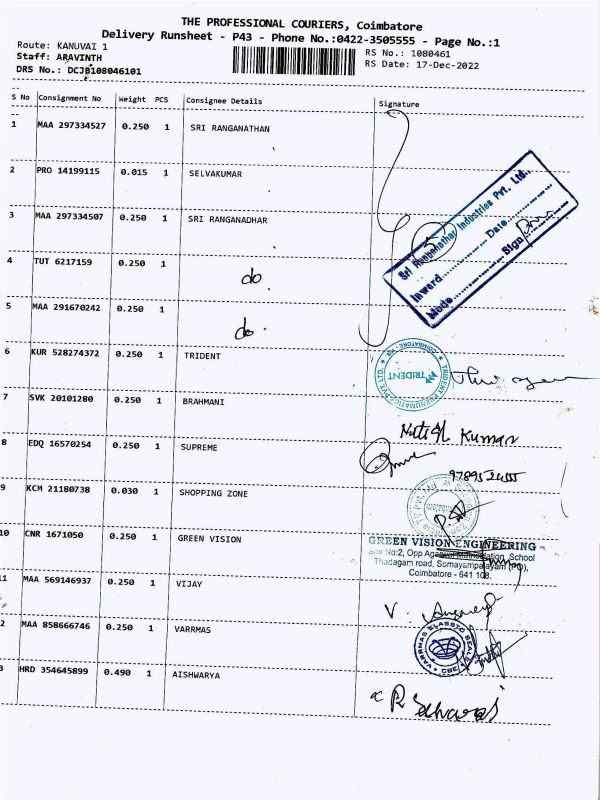 THE PROFESSIONAL COURIERS, Coimbatore
Delivery Runsheet - P43 - Phone No.:0422-3505555 - Page No.:1
Route: KANUVAI 1
RS No.: 1080461
Staff: ARAVINTH
RS Date: 17-Dec-2022
DRS No.: DCJB108046101
S No Consignment No Weight PCS Consignee Details Signature
1 MAA 297334527 0.250 1 SRI RANGANATHAN
2 PRO 14199115 0.015 1 SELVAKUMAR
3 MAA 297334507 0.250 1 SRI RANGANADHAR
4 TUT 6217159 0.250 1 do
5 MAA 291670242 0.250 1 do
Sri Ranganathar Industries Pvt. Ltd.,
Inward Date
Mode Sign
5
6 KUR 528274372 0.250 1 TRIDENT
TRIDENT
7 SVK 20101280 0.250 1 BRAHMANI
Kumar
8 EDQ 16570254 0.250 1 SUPREME
9 KCM 21180738 0.030 1 SHOPPING ZONE
10 CNR 1671050 0.250 1 GREEN VISION
GREEN VISION ENGINEERING
Site No:2, Opp School
Thadagam road, Somayampalayam (PO),
Coimbatore - 641 108.
11 MAA 569146937 0.250 1 VIJAY
V.
2 MAA 858666746 0.250 1 VARRMAS
VARRMAS ELASSTO SEALS
CBE
3 HRD 354645899 0.490 1 AISHWARYA